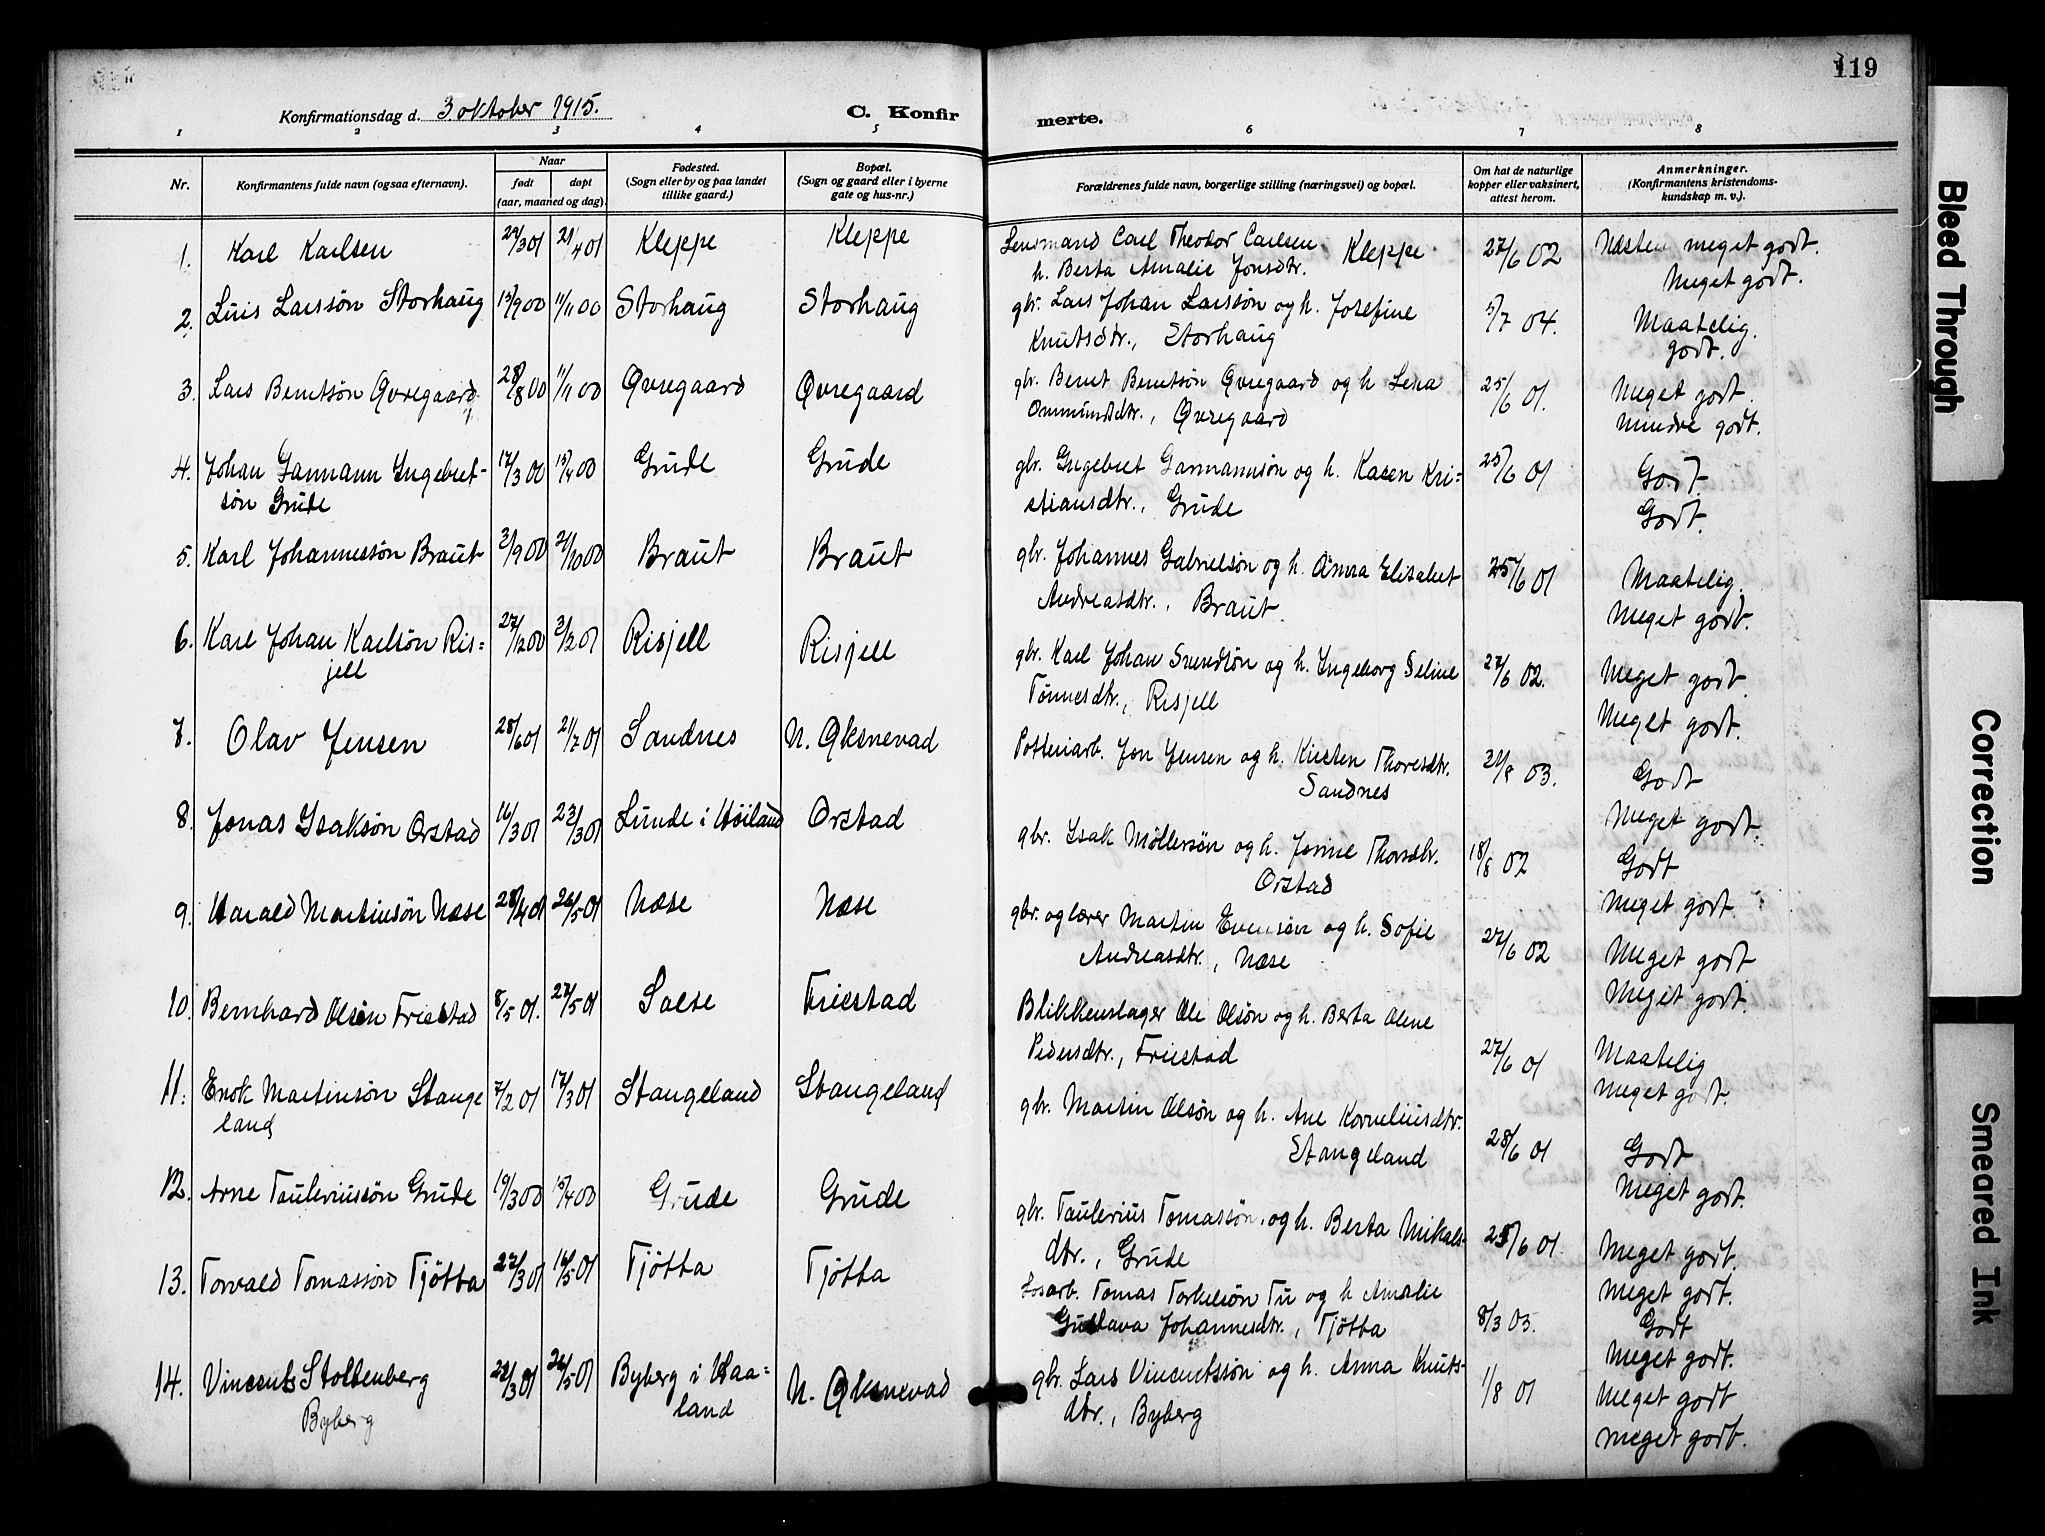 119
Konfirmationsdag d. 3 oktober 1915.
C. Konfirmerte.
1 2 3 4 5 6 7 8
Nr.
Konfirmantens fulde navn (ogsaa efternavn).
Naar
født døpt
(aar, maaned og dag).
Fødested.
(Sogn eller by og paa landet
tillike gaard.)
Bopæl.
(Sogn og gaard eller i byerne
gate og hus-nr.)
Forældrenes fulde navn, borgerlige stilling (næringsvei) og bopæl.
Om hat de naturlige
kopper eller vaksinert,
attest herom.
Anmerkninger.
(Konfirmantens kristendoms-
kundskap m. v.).
1. Karl Karlsen 29/3 01 21/4 01 Kleppe Kleppe
Lensmand Carl Theodor Carlsen
h. Berta Amalie Jonsdtr. Kleppe 27/6 02
Næsten meget godt.
Meget godt.
2. Luis Larssøn Storhaug 15/9 00 11/11 00 Storhaug Storhaug
gbr. Lars Johan Larssøn og h. Josefine
Knutsdtr., Storhaug 5/7 04.
Maatelig.
godt.
3. Lars Berntsøn Øvregaard 28/8 00 11/11 00 Øvregaard Øvregaard
gbr. Bernt Berntsøn Øvregaard og h. Lena
Ommundsdtr., Øvregaard 25/6 01.
Meget godt.
Mindre godt.
4. Johan Garmann Ingebret-
søn Grude 17/3 00 15/4 00 Grude Grude
gbr. Ingebret Garmannsøn og h. Karen Kri-
stiansdtr., Grude 25/6 01
Godt
Godt.
5. Karl Johannessøn Braut 2/9 00 21/10 00 Braut Braut
gbr. Johannes Gabrielsøn og h. Anna Elisabet
Andreasdtr., Braut. 25/6 01
Maatelig.
Meget godt.
6. Karl Johan Karlsøn Ris=
jell 27/12 00 3/2 01 Risjell Risjell
gbr. Karl Johan Svendsøn og h. Ingeborg Seline
Tønnesdtr., Risjell 27/6 02.
Meget godt.
Meget godt.
7. Olav Jensen 28/6 01 21/7 01 Sandnes N. Øksnevad
Potteriarb. Jon Jensen og h. Kirsten Thoresdtr.
Sandnes 31/8 03.
Godt
Meget godt.
8. Jonas Isaksøn Orstad 16/3 01 23/3 01 Lunde i Høiland Orstad
gbr. Isak Møllersøn og h. Jorine Thorsdtr.
Orstad 18/8 02
Godt
Meget godt.
9. Harald Martinsøn Næse 28/4 01 26/5 01 Næse Næse
gbr. og lærer Martin Evensøn og h. Sofie
Andreasdtr., Næse 27/6 02
Meget godt
Meget godt.
10. Bernhard Olsøn Friestad 8/5 01. 27/5 01 Soese Friestad
Blikkenslager Ole Olsøn og h. Berta Olene
Pedersdtr., Friestad 27/6 01
Maatelig
Meget godt.
11. Enok Martinsøn Stange
land 7/2 01 17/3 01 Stangeland Stangeland
gbr. Martin Olsøn og h. Ane Korneliusdtr.
Stangeland 28/6 01
Godt
Meget godt.
12. Arne Tauleriussøn Grude 19/3 00 15/4 00 Grude Grude
gbr. Taulerius Tomassøn og h. Berta Mikals-
dtr., Grude 25/6 01.
Meget godt.
Meget godt.
13. Torvald Tomassøn Tjøtta 22/3 01 16/5 01 Tjøtta Tjøtta
Løsarb. Tomas Torkelsøn Tu og h Amalie
Gustava Johannesdtr., Tjøtta 8/3 03.
Godt
Meget godt.
14. Vincents Stoltenberg
Byberg 22/3 01 26/5 01 Byberg i Haa=
land N. Øksnevad
gbr. Lars Vincentssøn og h. Anna Knuts-
dtr., Byberg 1/8 01
Meget godt
Meget godt.
Bleed Through
Correction
Smeared Ink